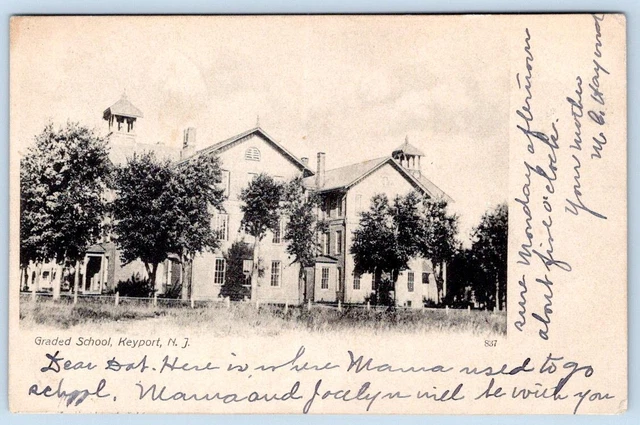 Graded School, Keyport, N. J.
837
Dear Dot. Here is where Mama used to go
school. Mama and Jocelyn will be with you
sure Monday afternoon
about five o'clock.
Your mother
M. C.